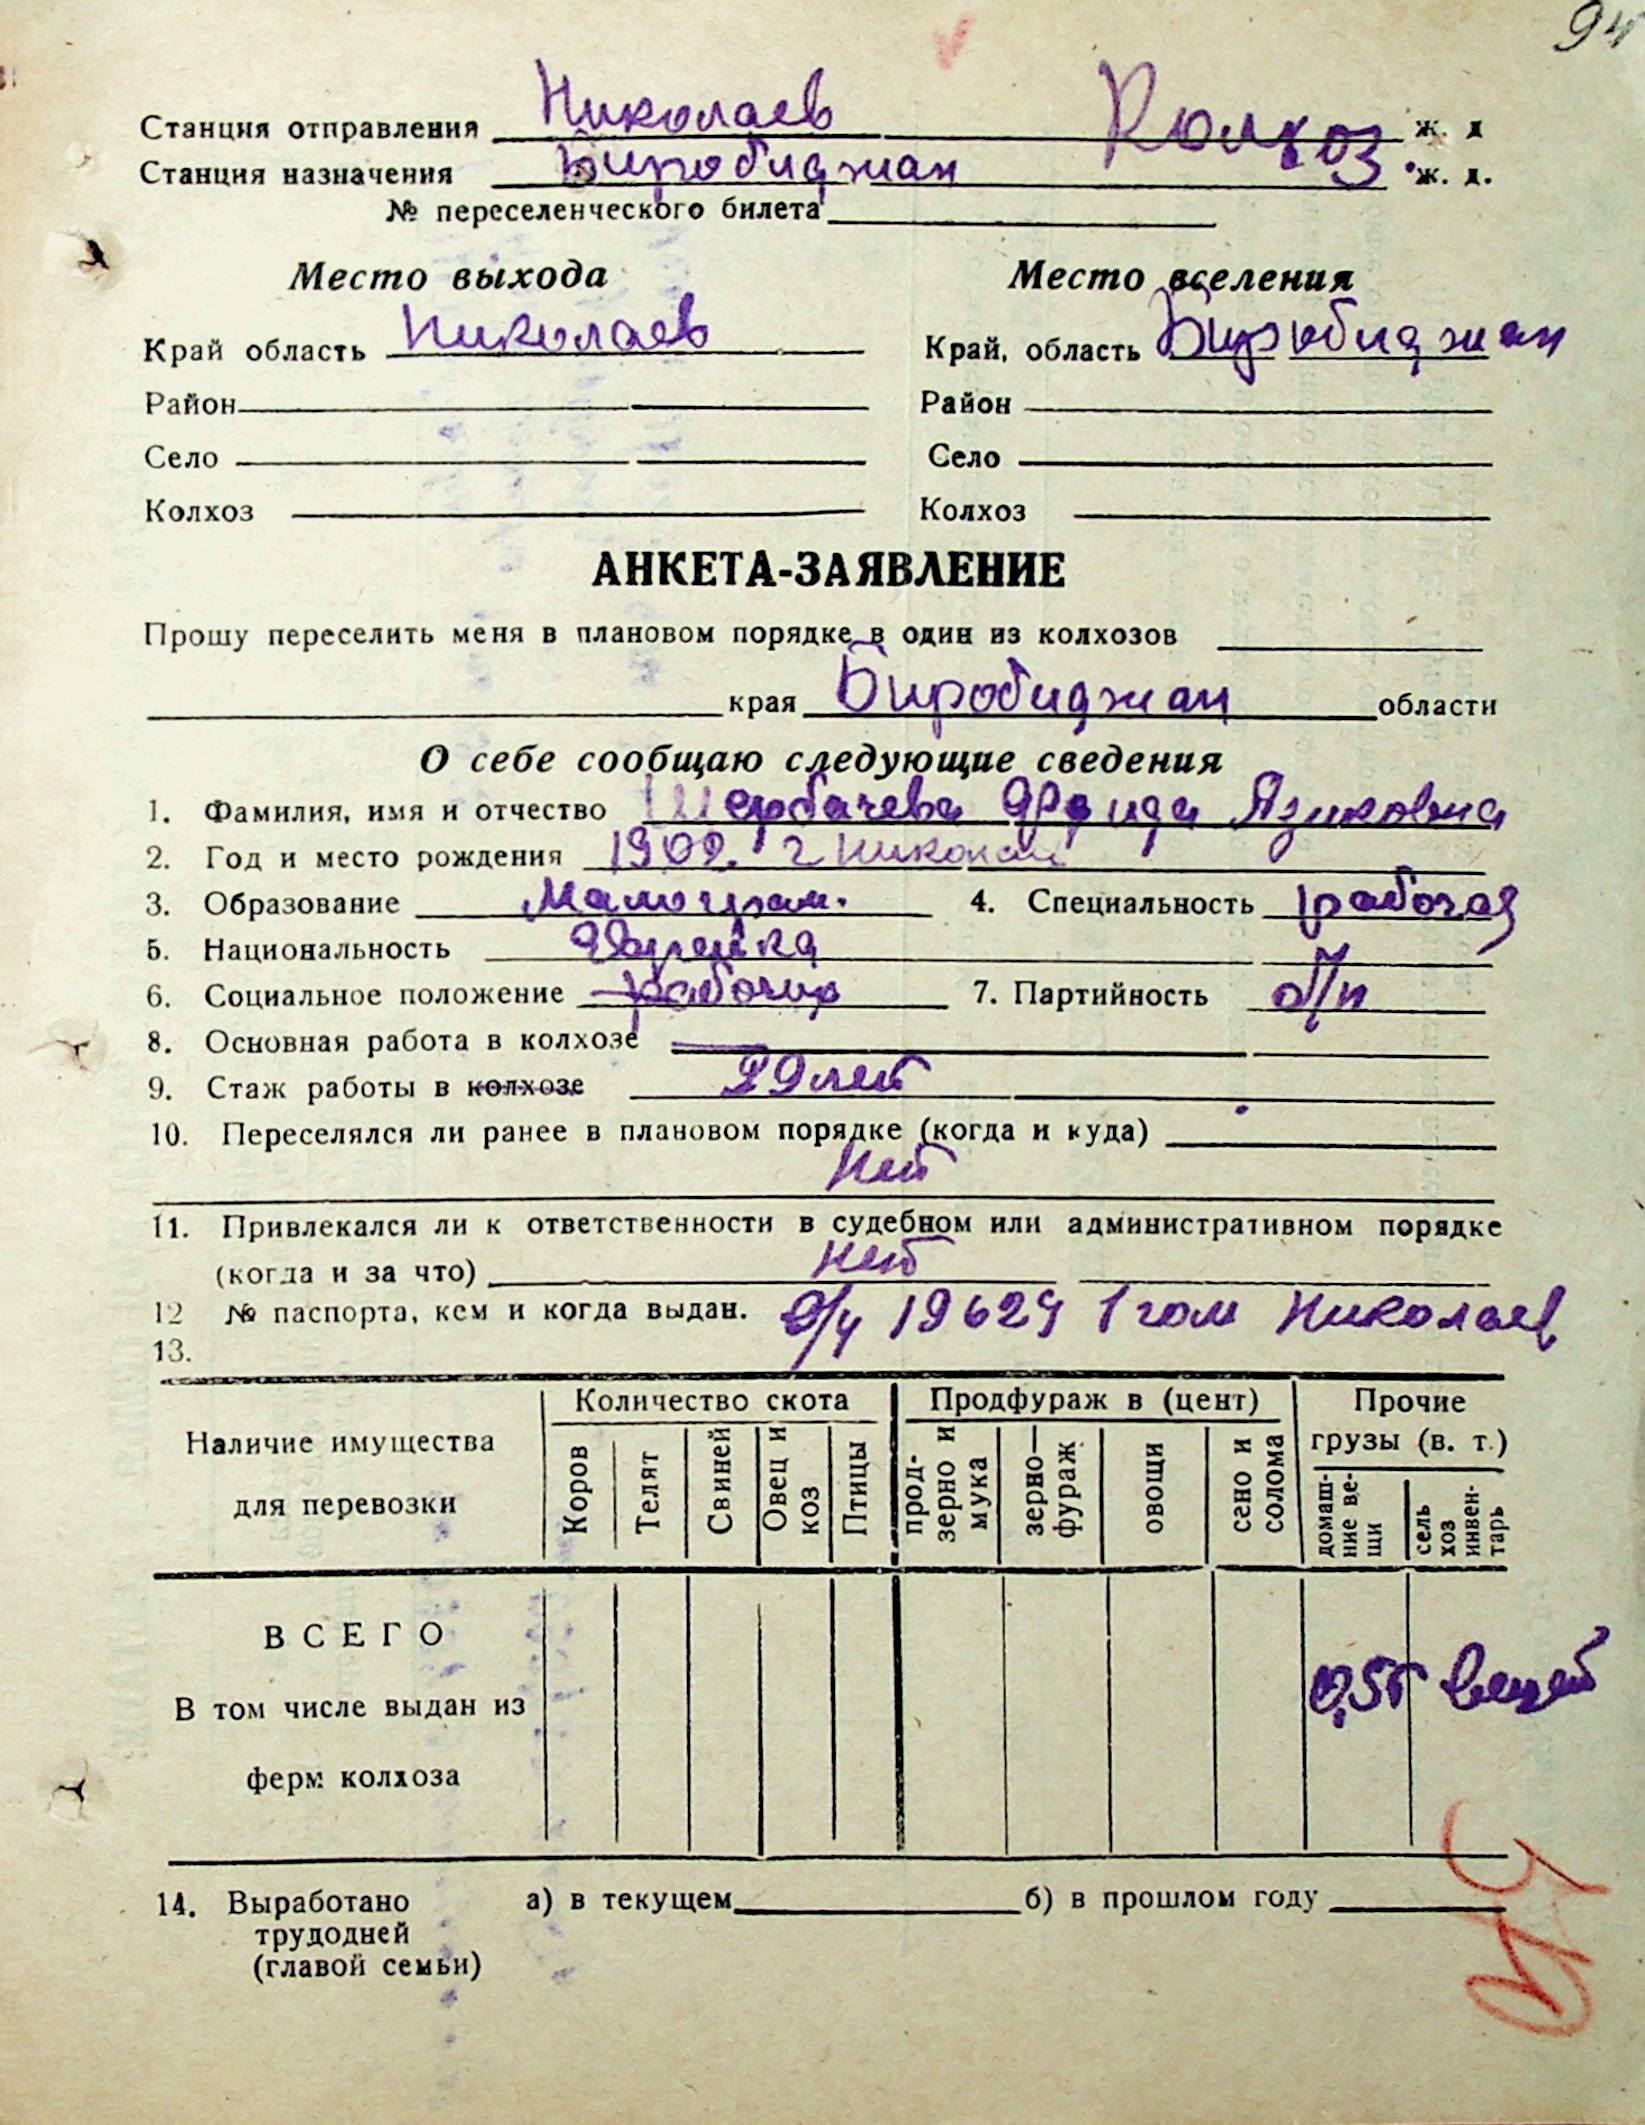 94
Станция отправления Николаев Колхоз ж. д
Станция назначения Биробиджан ж. д.
№ переселенческого билета
Место выхода Место вселения
Край область Николаев Край, область Биробиджан
Район Район
Село Село
Колхоз Колхоз
АНКЕТА-ЗАЯВЛЕНИЕ
Прошу переселить меня в плановом порядке в один из колхозов
края Биробиджан области
О себе сообщаю следующие сведения
1. Фамилия, имя и отчество Щербачева Фрида
2. Год и место рождения 1909. г Николаев
3. Образование Малограм. 4. Специальность рабочая
5. Национальность Еврейка
6. Социальное положение рабочая 7. Партийность б/п
8. Основная работа в колхозе
9. Стаж работы в колхозе 29 лет
10. Переселялся ли ранее в плановом порядке (когда и куда)
Нет
11. Привлекался ли к ответственности в судебном или административном порядке
нет
(когда и за что)
12 № паспорта, кем и когда выдан. 1 гом Николаев
13.
Количество скота Продфураж в (цент) Прочие грузы (в. т.)
Наличие имущества для перевозки Коров Телят Свиней Овец и коз Птицы прод-зерно и мука зерно—фураж овощи сено и солома домаш-ние ве-щи сель хоз инвен-тарь
ВСЕГО
0,5т вещей
В том числе выдан из
ферм колхоза
14. Выработано а) в текущем б) в прошлом году
трудодней
(главой семьи)